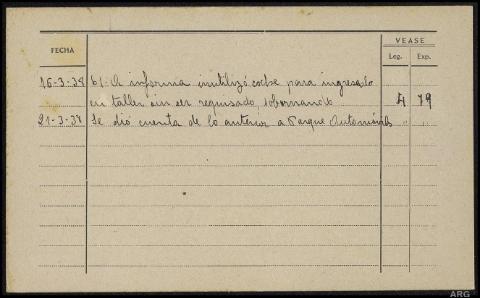 VEASE
FECHA Leg. Exp.
16-3-38 61-A informa inutilizó coche para ingresarlo
en taller sin ser requisado sobornando 4 79
21-3-38 Se dió cuenta de lo anterior a Parque Automóvils " "
ARG